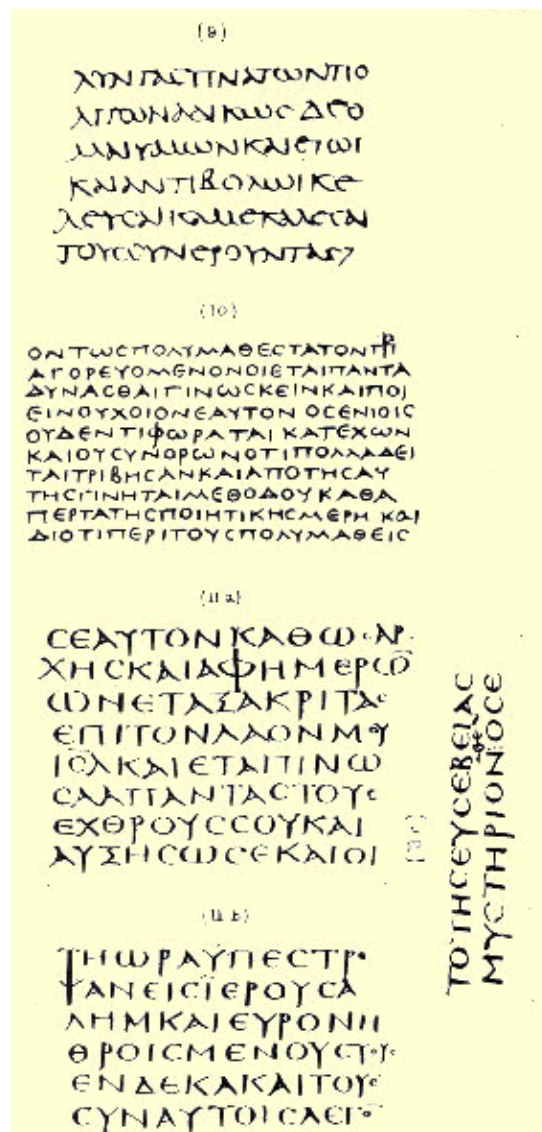 (9)
ΜΑΙΥΜΩΝΚΑΙΕΤΩΙ
ΚΑΙΑΝΤΙΒΟΛΩΙΚΕ
ΤΟΥCCΥΝΕΡΟΥΝΤΑC7
(10)
ΟΝΤΩCΠΟΛΥΜΑΘΕCΤΑΤΟΝΠΡ
ΑΓΟΡΕΥΟΜΕΝΟΝΟΙΕΤΑΙΠΑΝΤΑ
ΔΥΝΑCΘΑΙΓΙΝΩCΚΕΙΝΚΑΙΠΟΙ
ΕΙΝΟΥΧΟΙΟΝΕΑΥΤΟΝ ΟCΕΝΙΟΙC
ΟΥΔΕΝΤΙΦΩΡΑΤΑΙ ΚΑΤΕΧΩΝ
ΚΑΙΟΥCΥΝΟΡΩΝΟΤΙΠΟΛΛΑΔΕΙ
ΤΑΙΤΡΙΒΗCΑΝΚΑΙΑΠΟΤΗCΑΥ
ΤΗCΓΙΝΗΤΑΙΜΕΘΟΔΟΥΚΑΘΑ
ΠΕΡΤΑΤΗCΠΟΙΗΤΙΚΗCΜΕΡΗ ΚΑΙ
ΔΙΟΤΙΠΕΡΙΤΟΥCΠΟΛΥΜΑΘΕΙC
(11 a)
CΕΑΥΤΟΝΚΑΘΩCΑΡ
ΧΗCΚΑΙΑΦΗΜΕΡΩ̅
ΩΝΕΤΑΞΑΚΡΙΤΑC
ΕΠΙΤΟΝΛΑΟΝΜΟΥ
ΙCΛΚΑΙΕΤΑΠΙΝΩ
CΑΑΠΑΝΤΑCΤΟΥC
ΕΧΘΡΟΥCCΟΥΚΑΙ
ΑΥΞΗCΩCΕΚΑΙΟΙ
(11 b)
ΤΗΩΡΑΥΠΕCΤΡΕ
ΨΑΝΕΙCΪΕΡΟΥCΑ
ΛΗΜΚΑΙΕΥΡΟΝΗ
ΘΡΟΙCΜΕΝΟΥCΤΟΥC
ΕΝΔΕΚΑΚΑΙΤΟΥC
CΥΝΑΥΤΟΙCΛΕΓΟ̅
ΤΟΤΗCΕΥCΕΒΕΙΑC
ΜΥCΤΗΡΙΟΝΟCΕ